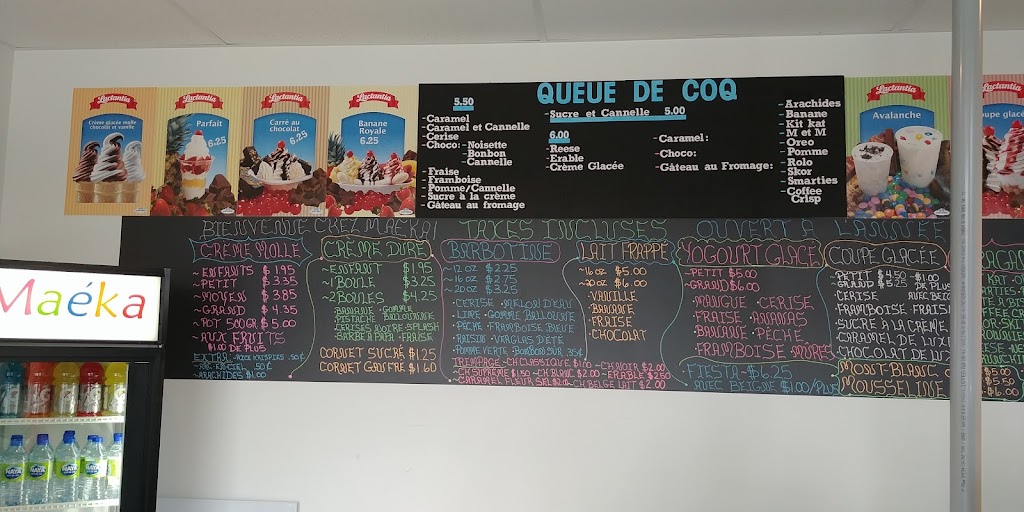 Lactantia
Crème glacée molle
chocolat et vanille
Lactantia
Parfait
6.25
Lactantia
Carré au
chocolat
6.25
Lactantia
Banane
Royale
6.25
QUEUE DE COQ
5.50
-Caramel
-Caramel et Cannelle
-Cerise
-Choco:-Noisette
-Bonbon
-Cannelle
-Fraise
-Framboise
-Pomme/Cannelle
-Sucre à la crème
-Gâteau au fromage
-Sucre et Cannelle 5.00
6.00
-Reese
-Erable
-Crème Glacée
-Caramel:
-Choco:
-Gâteau au Fromage:
-Arachides
-Banane
-Kit kat
-M et M
-Oreo
-Pomme
-Rolo
-Skor
-Smarties
-Coffee
Crisp
Avalanche
Lactantia
BIENVENUE CHEZ MAEKA! TAXES INCLUSES OUVERT À L'ANNÉE
CRÈME MOLLE
~ENFANTS $1.95
~PETIT $3.35
~MOYEN $3.85
~GRAND $4.35
~POT 500GR $5.00
~AUX FRUITS
$1.00 DE PLUS
EXTRA
~ARC-EN-CIEL .50¢
~ARACHIDES $1.00
CRÈME DURE
~ENFANT $1.95
~1 BOULE $3.25
~2 BOULES $4.25
BANANE · GOMME
PISTACHE BALLOUNE
CERISES NOIRE · SPLASH
BARBE À PAPA · FRAISE
CORNET SUCRÉ $1.25
CORNET GAUFRÉ $1.60
BARBOTINE
~12 OZ $2.25
~16 OZ $2.75
~20 OZ $3.25
·CERISE ·MELON D'EAU
·LIME ·GOMME BALLOUNE
·PÊCHE ·FRAMBOISE BLEUE
·RAISIN ·VERGLAS D'ÉTÉ
·POMME VERTE ·BONBON SUR .35¢
TREMPAGE ~CH CLASSIQUE $1.00 ~CH NOIR $2.00
~CH SUPRÊME $1.50 ~CH BLANC $2.00 ~ÉRABLE $2.50
~CARAMEL FLEUR SEL $2.00 ~CH BELGE LAIT $2.00
LAIT FRAPPÉ
~16 OZ $5.00
~20 OZ $6.00
VANILLE
BANANE
FRAISE
CHOCOLAT
YOGOURT GLACÉ
~PETIT $5.00
~GRAND $6.00
·MANGUE ·CERISE
·FRAISE ·ANANAS
·BANANE ·PÊCHE
·FRAMBOISE ·MÛRES
~FIESTA ~$6.25
AVEC BEIGNE $1.00/PLUS
COUPE GLACÉE
~PETIT $4.50
~GRAND $5.25
~$1.00
DE PLUS
AVEC BEIGNE
·CERISE
·FRAMBOISE ·FRAISE
·SUCRE À LA CRÈME
·CARAMEL DE LUXE
·CHOCOLAT DE LUXE
MONT-BLANC
MOUSSELINE
$5.00
$5.50
$6.00
Maéka
NAYA